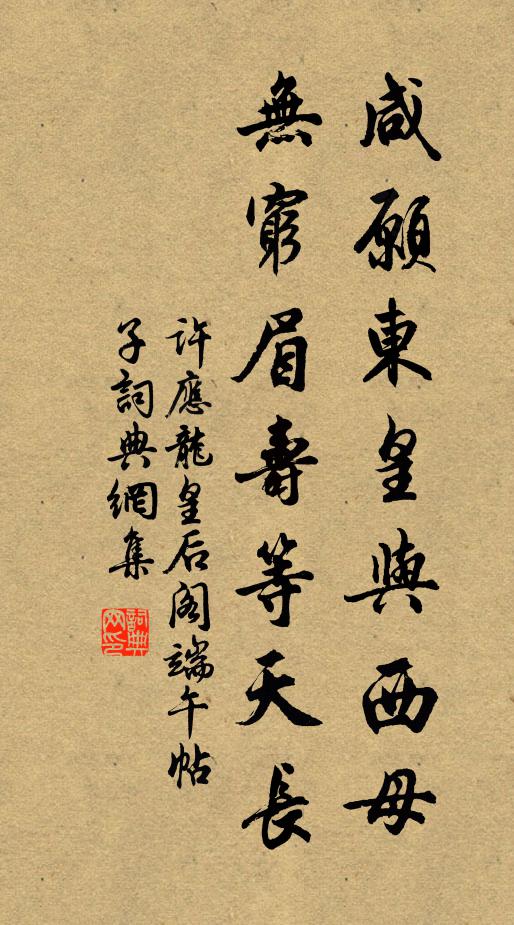 咸願東皇與西母
無窮眉壽等天長
許應龍皇后閣端午帖
子詞典網集
詞典网印